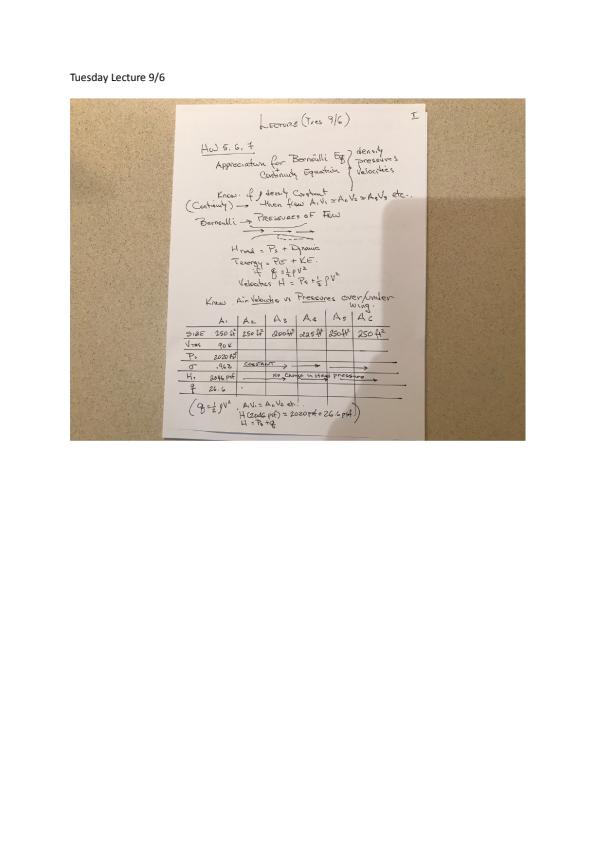 Tuesday Lecture 9/6
LECTURE (Tues 9/6) I
HW 5, 6, 7
Appreciation for Bernoulli Eq } density
Continuity Equation pressures
velocities
Know if ρ density Constant
(Continuity) → then flow A₁V₁ = A₂V₂ = A₃V₃ etc..
Bernoulli → PRESSURES OF FLOW
H = Ps + Dynamic
Tenergy = PE + KE.
if q = ½ρV²
Velocities H = Ps + ½ρV²
Know Air Velocities vs Pressures over/under
wing.
A₁ A₂ A₃ A₄ A₅ A₆
SIZE 250 ft² 250 ft² 200 ft² 225 ft² 250 ft² 250 ft²
VTAS 90k
Ps 2020 psf
σ .968 CONSTANT → → →
H₁ 2046 psf → No Change in pressure →
q 26.6
(q = ½ρV², A₁V₁ = A₂V₂ etc..
H (2046 psf) = 2020 psf + 26.6 psf)
H = Ps + q